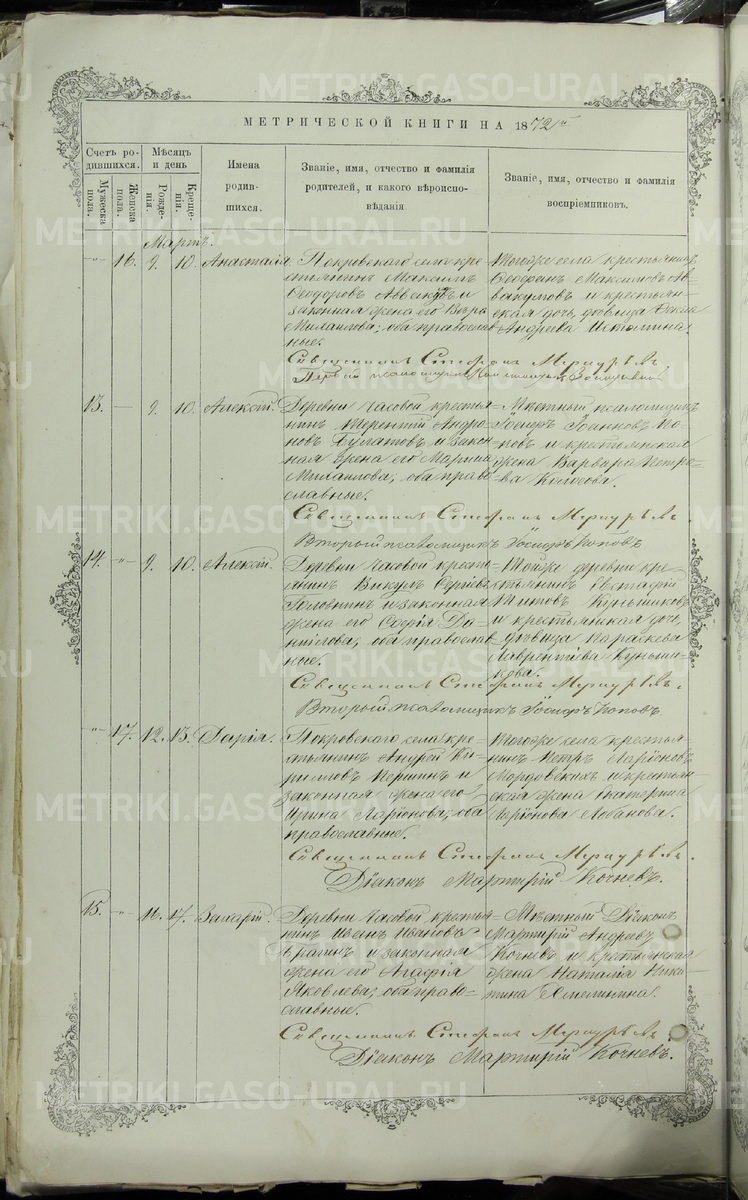 METRIKI.GASO-URAL.RU
МЕТРИЧЕСКОЙ КНИГИ НА 1872й
Счетъ ро-
дившихся.
Мужеска
пола.
Женска
пола.
Мѣсяцъ
и день
Рожде-
нія.
Креще-
нія.
Имена
родив-
шихся.
Званіе, имя, отчество и фамилія
родителей, и какого вѣроиспо-
вѣданія
Званіе, имя, отчество и фамилія
воспріемниковъ.
Мартъ.
„ 16. 9. 10. Анастасія
Покровскаго села кре-
стьянинъ Максимъ
Ѳеодоровъ Аввакумовъ и
законная жена его Вѣра
оба православ
ные.
Тогоже села крестьянинъ
Максимовъ Ав-
вакумовъ и крестьян-
ская дочь дѣвица
Андреева
Священникъ Стефанъ
Первый псаломщикъ
13. — 9. 10. Алексій.
Деревни Часовой крестья-
нинъ Терентій Андро-
новъ Булатовъ и закон-
ная жена его Марина
Михаилова; оба право-
славные.
Мѣстный псаломщикъ
Іосифъ Іоанновъ По-
повъ и крестьянская
жена Варвара Петро-
ва Колосова.
Священникъ Стефанъ
Второй псаломщикъ Іосифъ Поповъ
14. „ 9. 10. Алексій.
Деревни Часовой крест-
янинъ Викулъ Сергіевъ
Головнинъ и законная
жена его Софія Да-
ніилова; оба православ
ные.
Тойже деревни кре-
стьянинъ Евстафій
Титовъ
и крестьянская дочь,
дѣвица Параскева
Лаврентіева
Священникъ Стефанъ
Второй псаломщикъ Іосифъ Поповъ.
„ 17. 12. 13. Дарія.
Покровскаго села кре-
стьянинъ Андрей Ки-
рилловъ Першинъ и
законная жена его
Ирина Ларіонова; оба
православные.
Тогоже села крестья-
нинъ Петръ Ларіоновъ
Мордовскихъ и крестьян-
ская жена Екатерина
Ларіонова Лобанова.
Священникъ Стефанъ
Діаконъ Мартирій Кочневъ.
15. „ 16. 17. Валерій.
Деревни Часовой крестья-
нинъ Ивановъ
и законная
жена его Агафія
Яковлева; оба право-
славные.
Мѣстный Діаконъ
Мартирій Андреевъ
Кочневъ и крестьянская
жена Наталія Ники-
тина
Священникъ Стефанъ
Діаконъ Мартирій Кочневъ.